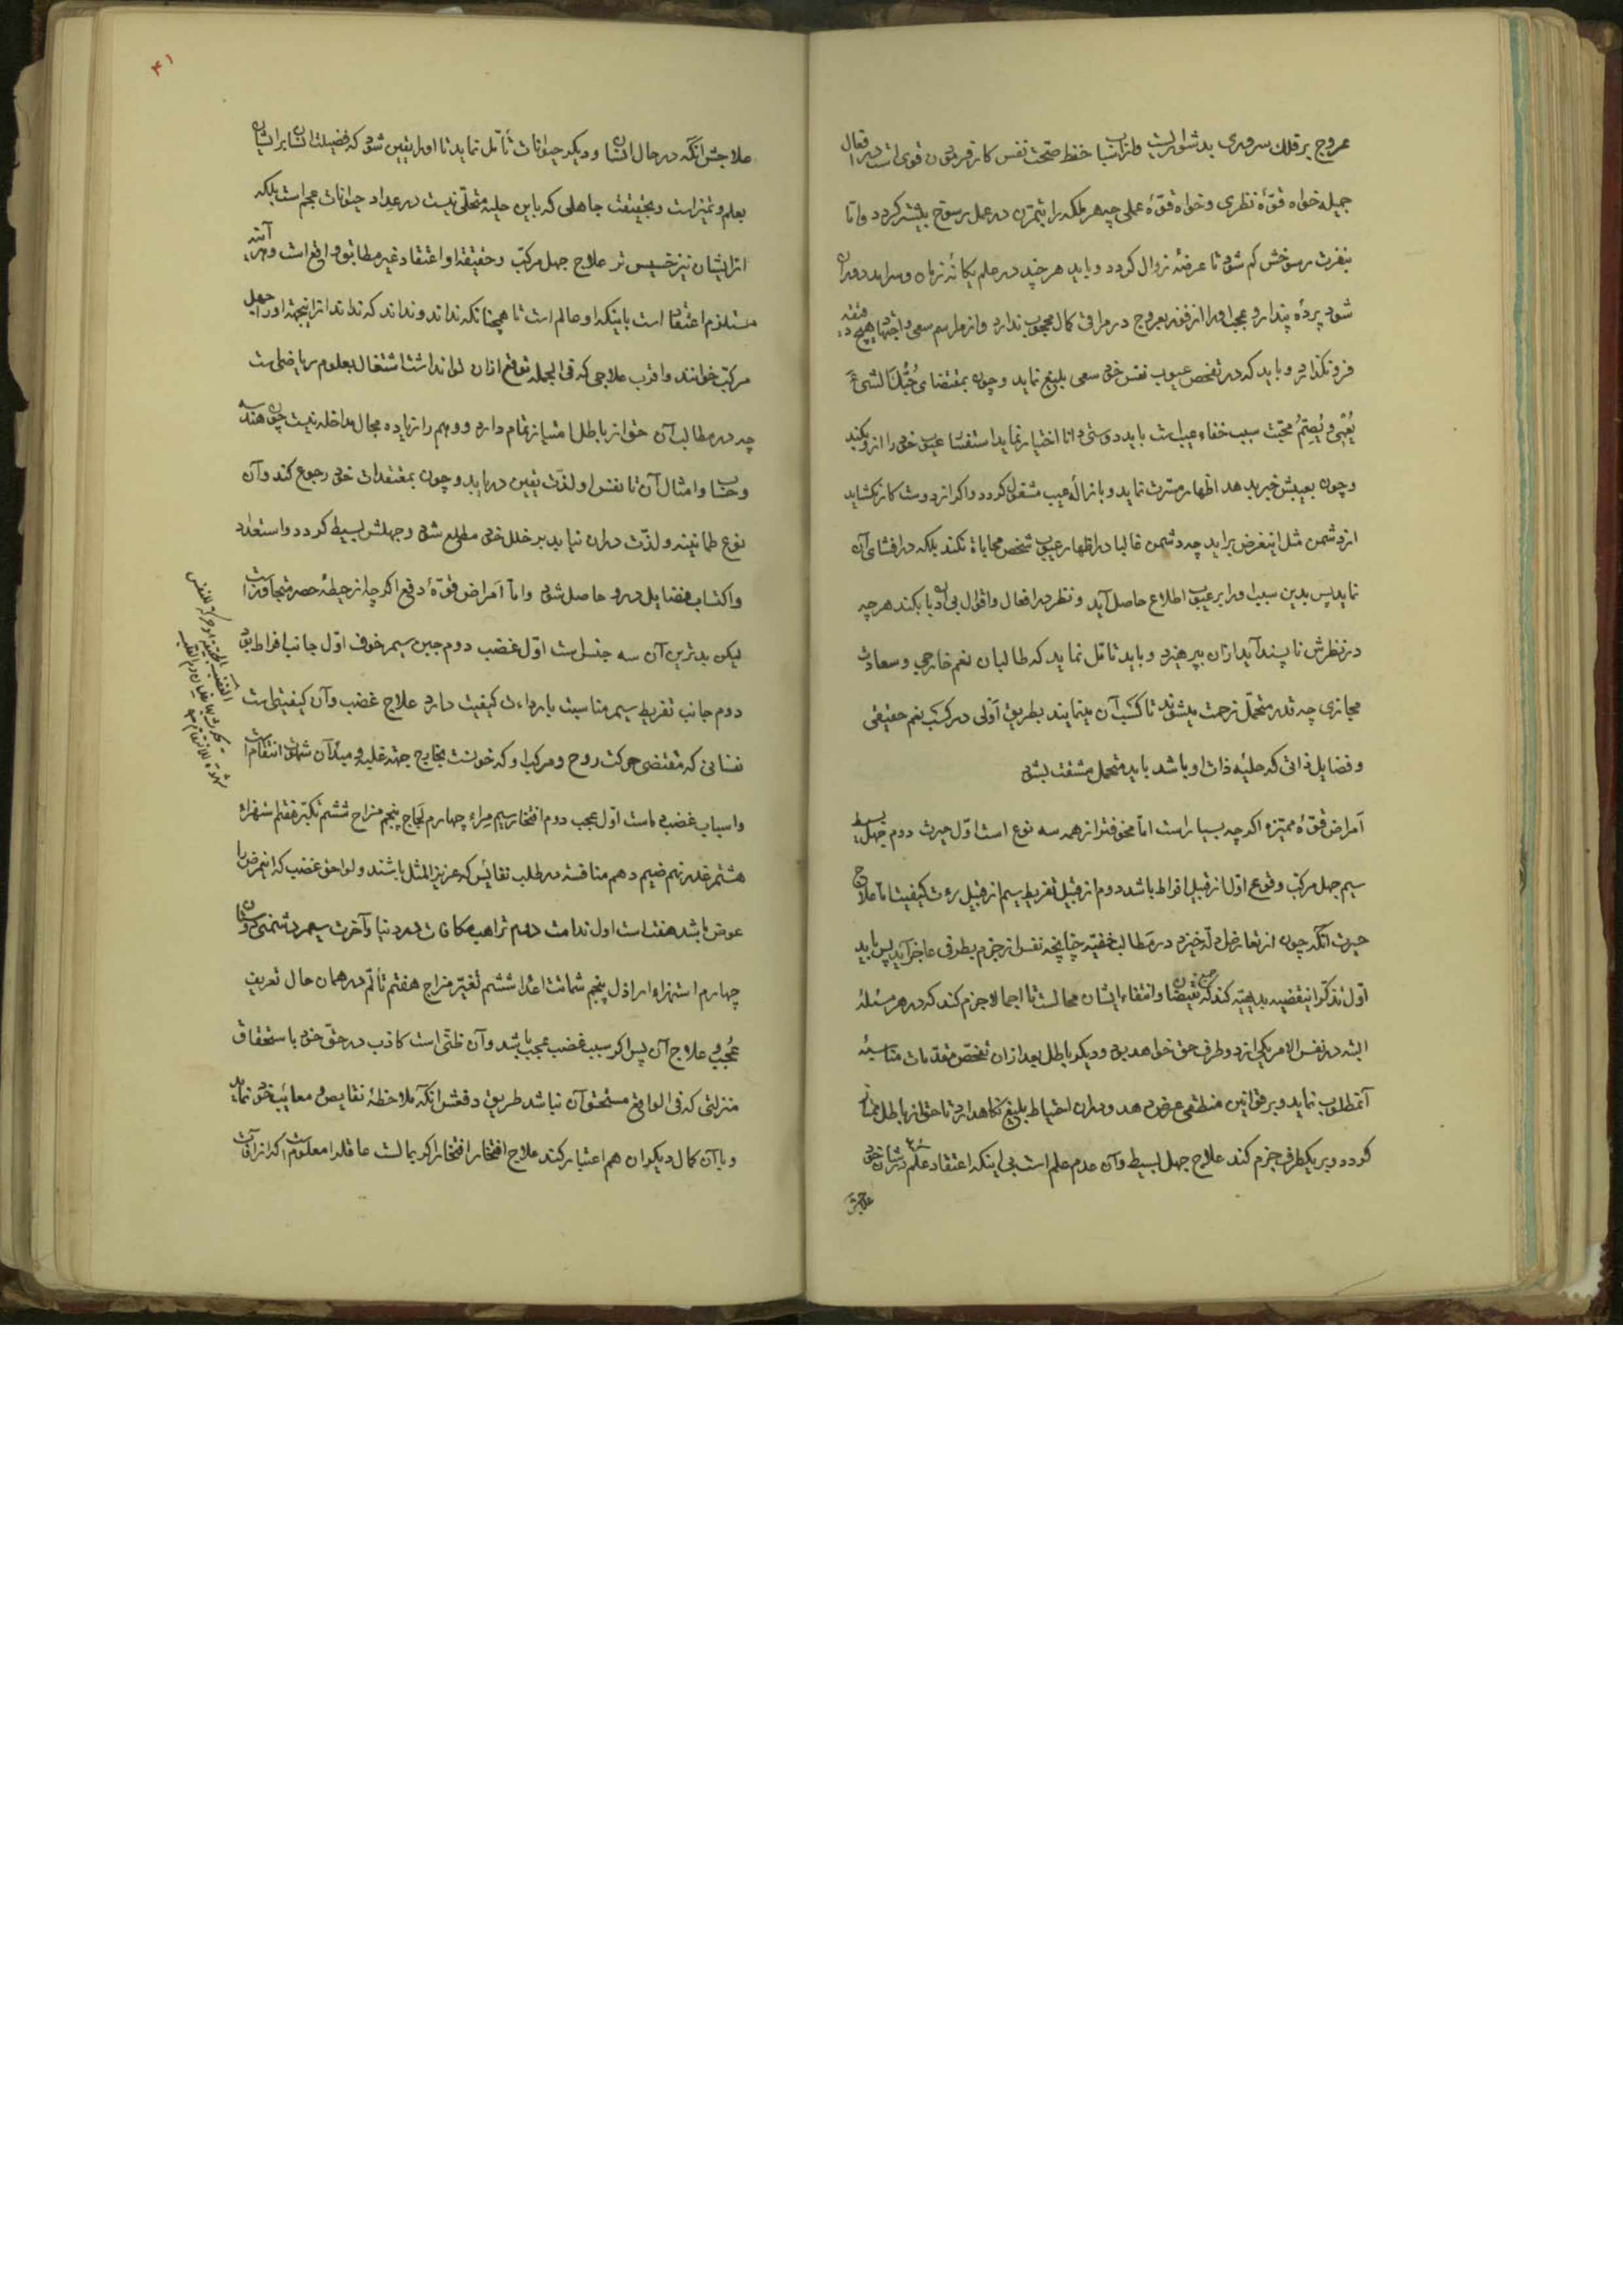 عروج بر قلل سروری بدشوار است و از اسباب حفظ صحت نفس کار فرمودن قوی است در افعال
جمیله خواه قوّهٔ نظری و خواه قوّهٔ عملی چه هر ملکه را بتمرّن در عمل رسوخ بیشتر گردد و اما
بنفرت رسوخش کم شود تا عرضهٔ زوال گردد و باید هر چند در علم یگانهٔ زمان و سرآمد دوران
شود پردهٔ پندار و عجب او را از فوز بعروج در مراقی کمال محجوب ندارد و از مراسم سعی و اجتهاد هیچ دقیقه
فرو نگذارد و باید که در تفحص عیوب نفس خود سعی بلیغ نماید و چون بمقتضای حُبُّکَ الشیءَ
یُعْمِی و یُصِمُّ محبت سبب خفاء عیب است باید دوستی دانا اختیار نماید استفسار عیب خود را ازو بکند
و چون بعیبش خبر دهد اظهار مسرت نماید و بازالهٔ عیب مشغول گردد و اگر از دوست کار نگشاید
از دشمن مثل این غرض برآید چه دشمن غالبا در اظهار عیوب شخص محاباة نکند بلکه در افشای آن
نماید پس بدین سبب او را بر عیوب اطلاع حاصل آید و نظر در افعال و اقوال بی ادبان بکند هر چه
در نظرش ناپسند آید از آن بپرهیزد و باید تأمل نماید که طالبان نعم خارجی و سعادت
مجازی چه قدر متحمّل زحمت میشوند تا کسب آن مینمایند بطریق اولی در کسب نعم حقیقی
و فضایل ذاتی که حلیهٔ ذات او باشد باید متحمل مشقت بشود
امراض قوّهٔ ممیزه اگر چه بسیار است اما مخوفتر از همه سه نوع است اوّل حیرت دوم جهل بسیط
سیم جهل مرکب وقوع اوّل از قبیل افراط باشد دوم از قبیل تفریط سیم از قبیل رداءت کیفیت اما علاج
حیرت آنکه چون از تعارض ادله خیزد در مطالب خفیّه چنانچه نفس از جزم بطرفی عاجز آید پس باید
اوّل تذکر این قضیه بدیهیّه کند که جمع نقیضان و انتفاء ایشان محال است تا اجمالا جزم کند که در هر مسئله
البته در نفس الامر یکی از دو طرف حق خواهد بود و دیگر باطل بعد از آن تفحص مقدّمات مناسبهٔ
آن مطلوب نماید و بر قوانین منطقی عرض دهد و در آن احتیاط بلیغ نگاهدارد تا حق از باطل ممتاز
گردد و بر یکطرف جزم کند علاج جهل بسیط و آن عدم علم است بی اینکه اعتقاد علم در شان خود
علاجش
۴۱
علاجش آنکه در حال انسان و دیگر حیوانات تأمل نماید تا او را یقین شود که فضیلت انسان بر ایشان
بعلم و تمیز است و بحقیقت جاهلی که باین حلیه متحلّی نیست در عداد حیوانات عجم است بلکه
از ایشان نیز خسیس تر علاج جهل مرکب و حقیقة او اعتقاد غیر مطابق واقع است و هر آینه
مستلزم اعتقاد است باینکه او عالم است تا همچنانکه نداند و نداند که نداند از اینجهة او را جهل
مرکب خوانند و اقرب علاجی که فی الجمله توقع از آن تواند داشت اشتغال بعلوم ریاضی است
چه در مطالب آن حق از باطل امتیاز تمام دارد و وهم را زیاده مجال مداخله نیست چون هندسه
و حساب و امثال آن تا نفس او لذّت یقین دریابد و چون بمعتقدات خود رجوع کند و آن
نوع طمانینه و لذّت در آن نیابد بر خلل خود مطلع شود و جهلش بسیط گردد و استعداد
و اکتساب فضایل درو حاصل شود و امّا امراض قوّهٔ دفع اگر چه از حیطهٔ حصر متجاوز است
لیکن بدترین آن سه جنس است اوّل غضب دوم جبن سیم خوف اوّل جانب افراط بود
دوم جانب تفریط سیم مناسبت با رداءت کیفیت دارد علاج غضب و آن کیفیتی است
نفسانی که مقتضی حرکت روح و مرکب او که خونست بخارج جهة غلبه و مبدأ آن شهوت انتقام است
و اسباب غضب ده است اوّل عجب دوم افتخار سیم مراء چهارم لجاج پنجم مزاح ششم تکبّر هفتم استهزاء
هشتم غدر نهم ضیم دهم منافسة در طلب نفائس که عزیز المثل باشند و لواحق غضب که این مرض را
عرض باشد هفت است اول ندامت دوم ترهب مکافات در دنیا و آخرت سیم دشمنی دوستان
چهارم استهزاء اراذل پنجم شماتت اعدا ششم تغیّر مزاج هفتم تألّم در همان حال تعریف
عُجب و علاج آن پس اگر سبب غضب عجب باشد و آن ظنّی است کاذب در حقّ خود باستحقاق
منزلتی که فی الواقع مستحق آن نباشد طریق دفعش آنکه ملاحظهٔ نقایص و معائب خود نماید
و با آن کمال دیگران هم اعتبار کند علاج افتخار افتخار اگر بمالست عاقل را معلوم است که از آفات
الغضب